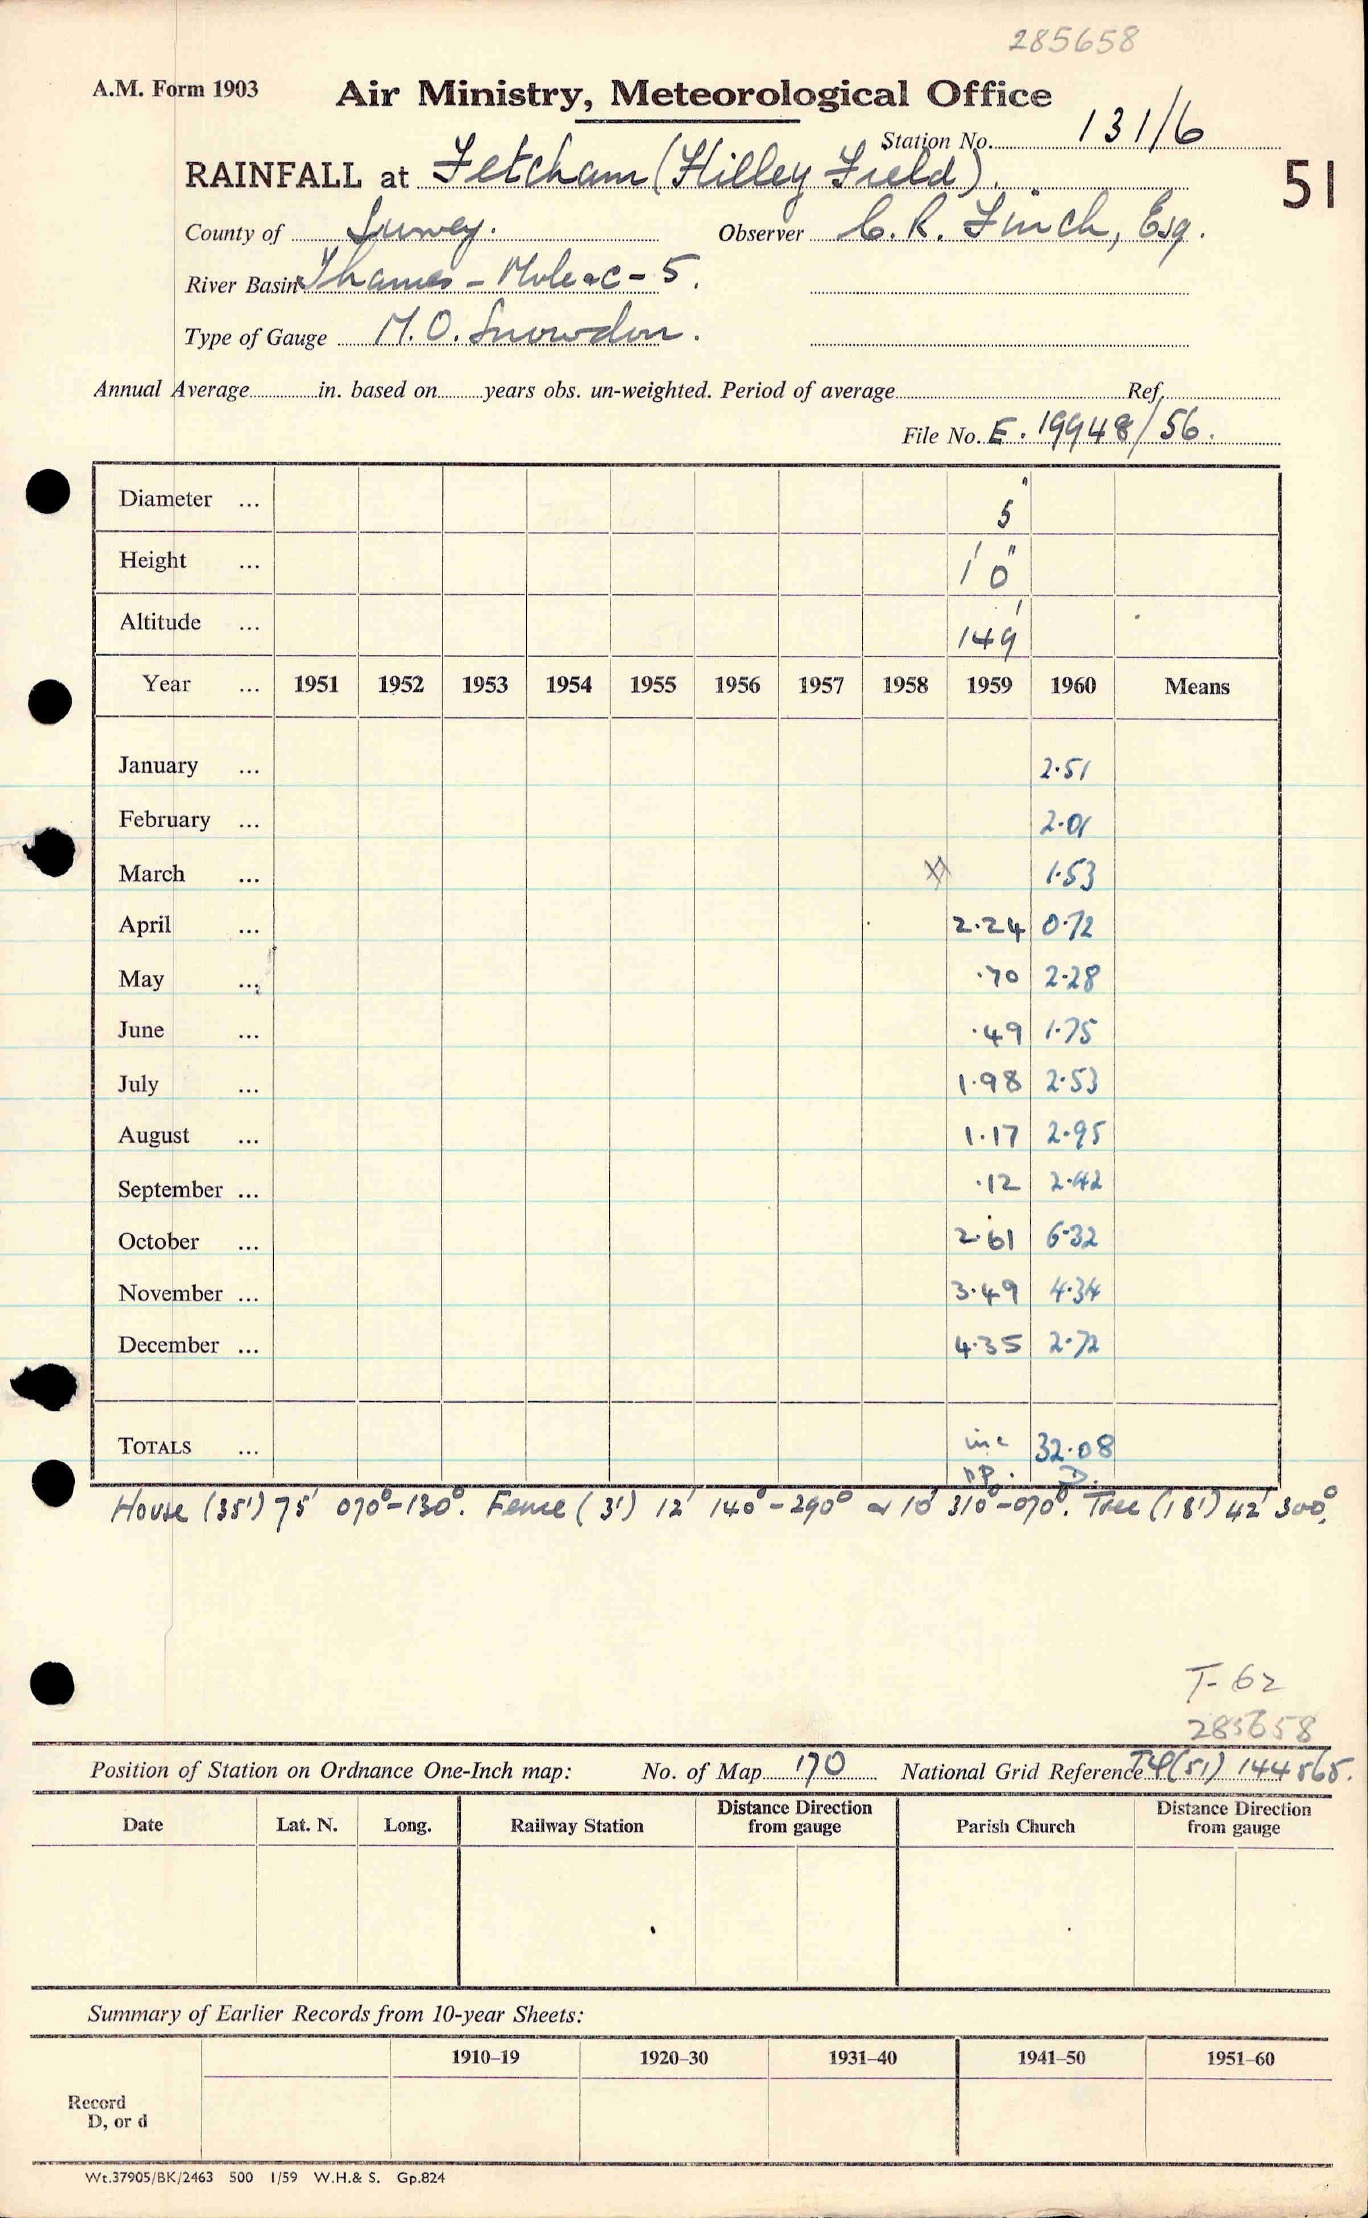 285658
A.M. Form 1903
Air Ministry, Meteorological Office
Station No. 131/6
RAINFALL at Fetcham (Hilley Field).
51
County of Surrey. Observer C. R. Finch, Esq.
River Basin Thames - Mole &c - 5.
Type of Gauge M.O. Snowdon.
Annual Average in. based on years obs. un-weighted. Period of average Ref.
File No. E. 19948/56.
Diameter ... 5"
Height ... 1' 0"
Altitude ... 149'
Year ... 1951 1952 1953 1954 1955 1956 1957 1958 1959 1960 Means
January ... 2.51
February ... 2.01
March ... 1.53
April ... 2.24 0.72
May ... .70 2.28
June ... .49 1.75
July ... 1.98 2.53
August ... 1.17 2.95
September ... .12 2.42
October ... 2.61 6.32
November ... 3.49 4.34
December ... 4.35 2.72
TOTALS ... inc 32.08
D.
House (35') 75' 070°-130°. Fence (3') 12' 140°-290° & 10' 310°-070°. Tree (18') 42' 300°.
T-62
285658
Position of Station on Ordnance One-Inch map: No. of Map 170 National Grid Reference TQ(51) 144565.
Date Lat. N. Long. Railway Station Distance Direction from gauge Parish Church Distance Direction from gauge
Summary of Earlier Records from 10-year Sheets:
1910–19 1920–30 1931–40 1941–50 1951–60
Record
D, or d
Wt.37905/BK/2463 500 1/59 W.H.& S. Gp.824